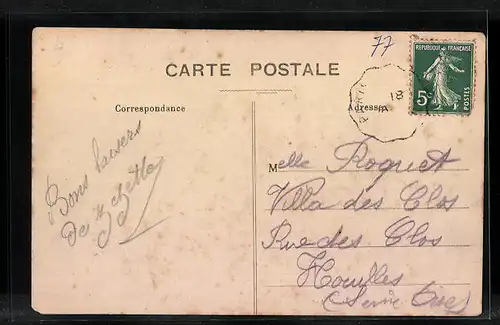 77
RÉPUBLIQUE FRANÇAISE
5c
POSTES
18
CARTE POSTALE
Correspondance
Adresse
Bons baisers
de
Melle Roquet
Villa des Clos
Rue des Clos
Houilles
(Seine Oise)